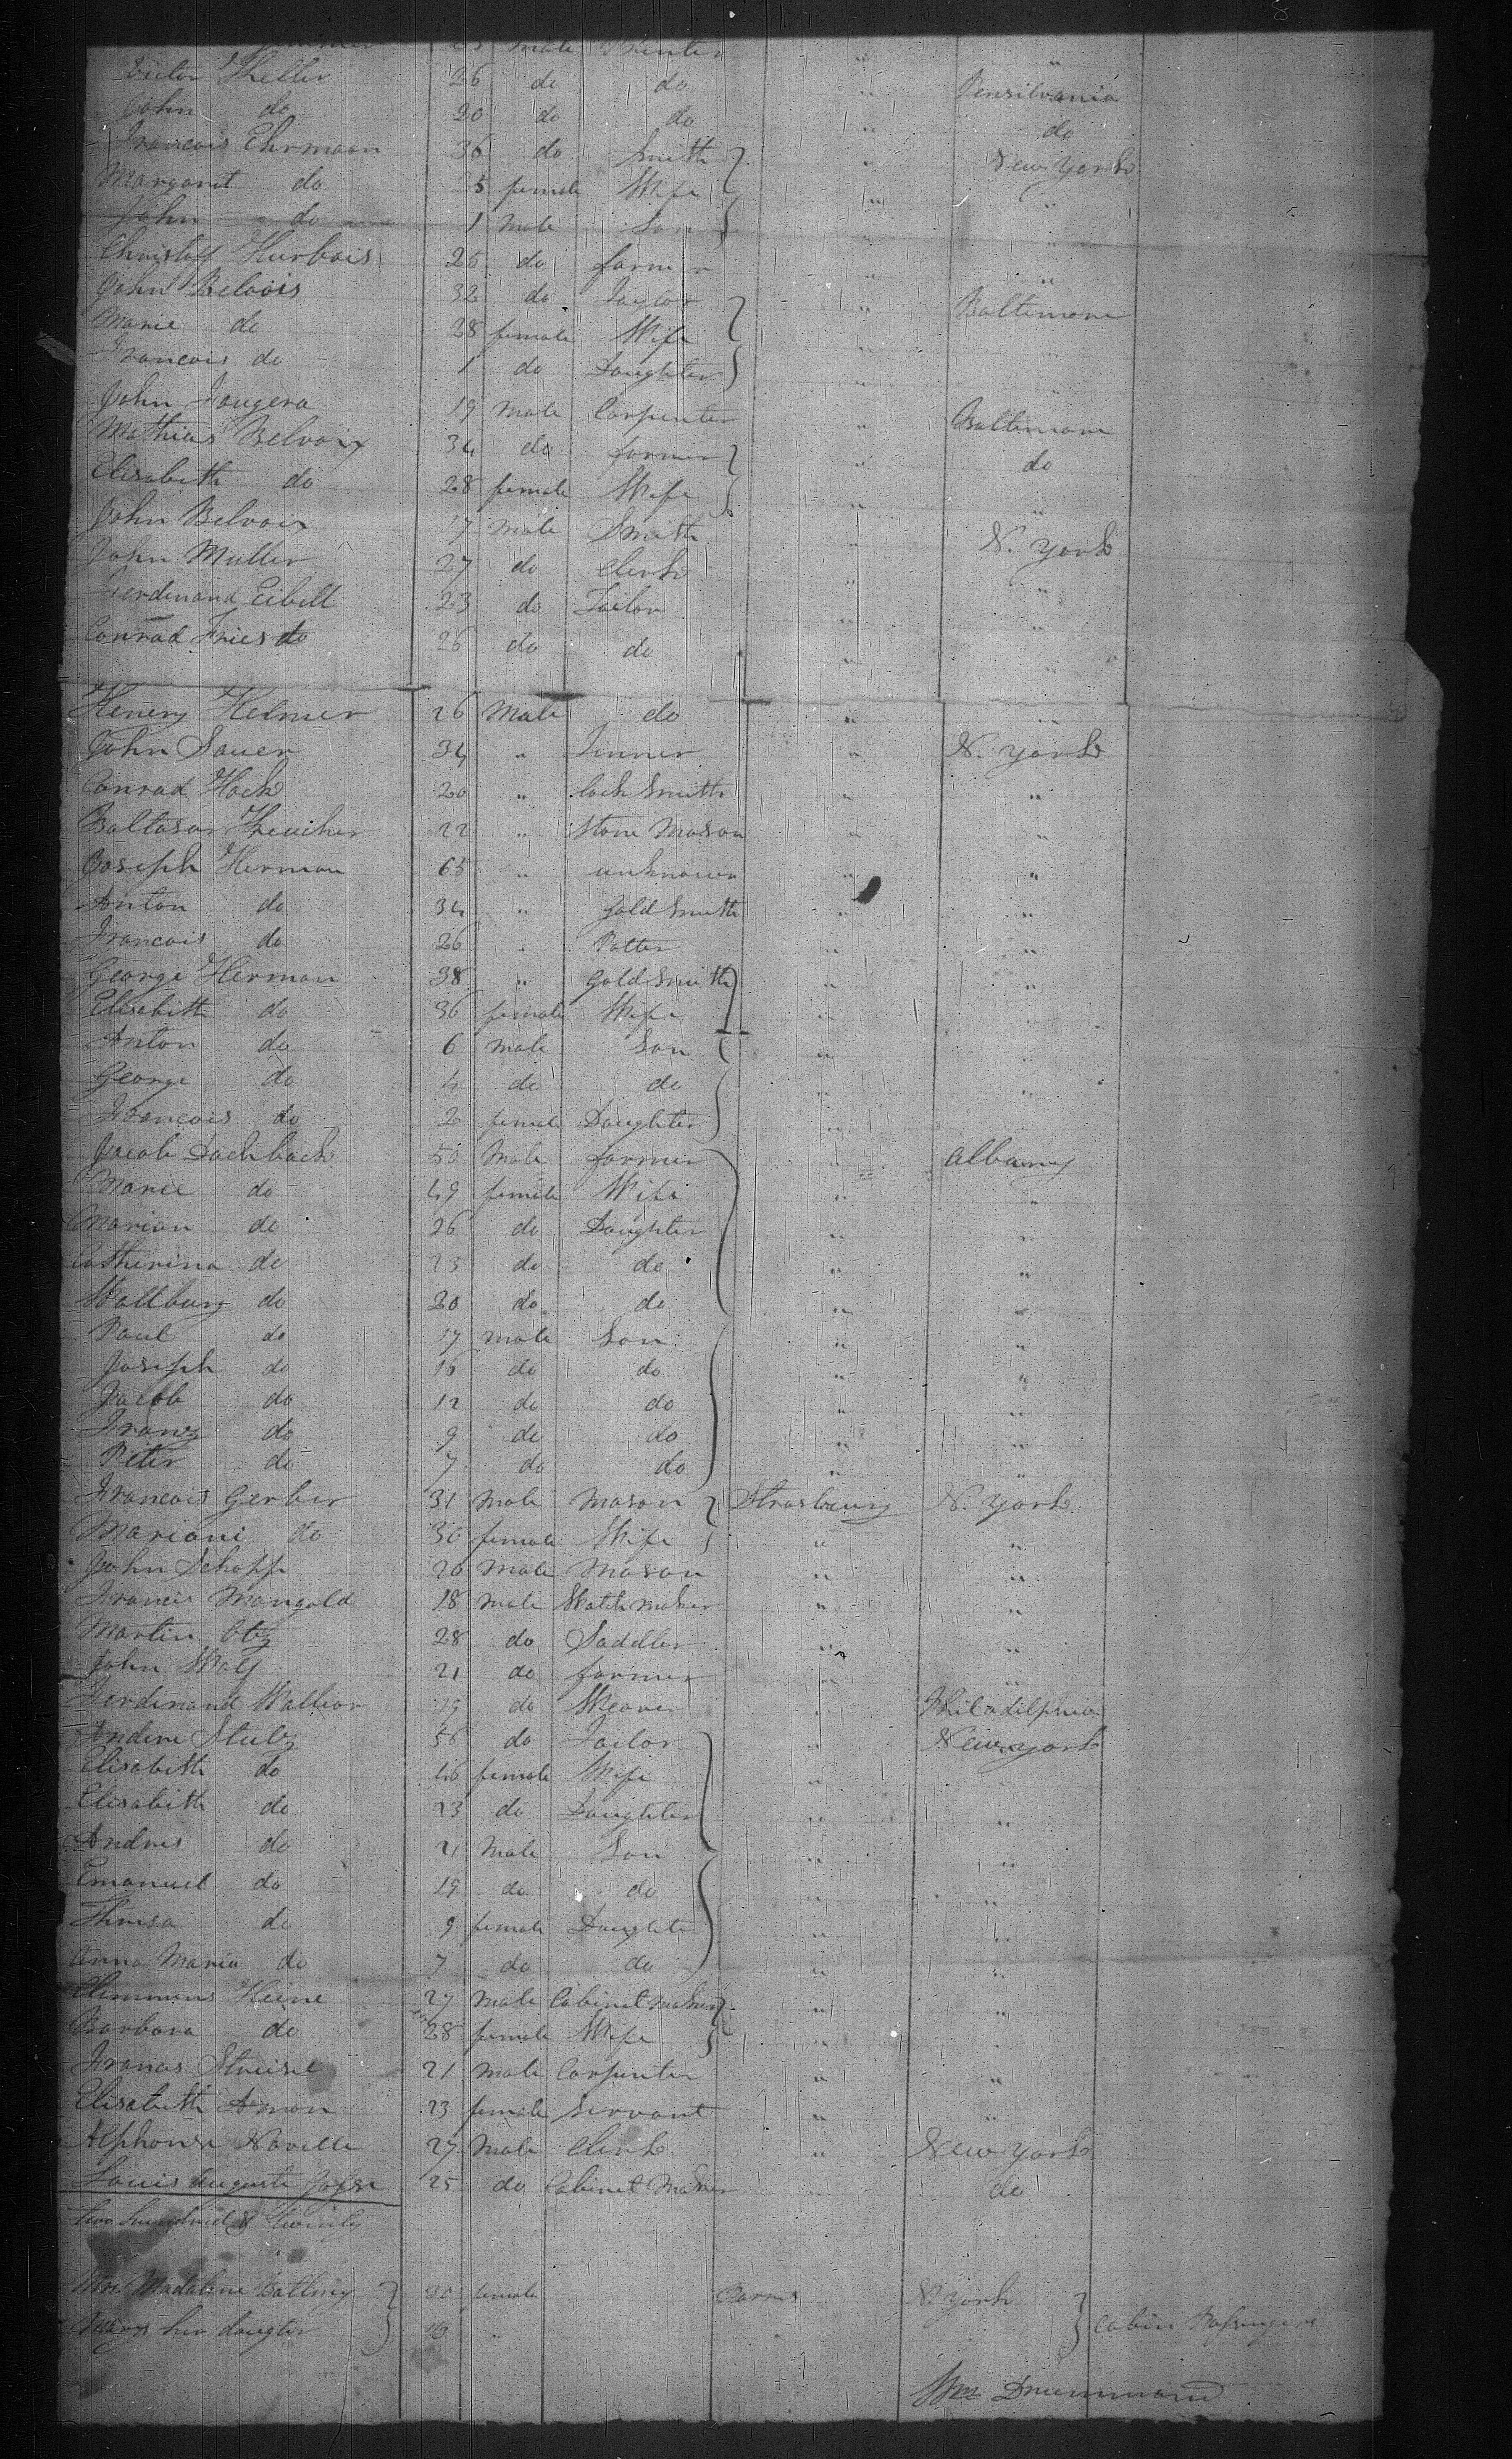 23 male
Victor Theller 26 do do " Pensilvania
John do 20 do do " do
Francois Ehrmann 36 do Smith " New York
Margaret do 25 female Wife " "
John do 1 Male Son " "
Christoff Hurbois 25 do farmer " "
John Belvois 32 do Taylor " Baltimore
Marie do 28 female Wife " "
Francois do 1 do Daughter " "
John Fougera 19 Male Carpenter " Baltimore
Mathias Belvoix 34 do farmer " do
Elisabeth do 28 female Wife " "
John Belvoix 17 Male Smith " N. York
John Muller 27 do Clerk " "
Ferdinand Eibell 23 do Tailor " "
Conrad Fries do 26 do do " "
Henery Helmer 26 Male do " "
John Sauer 34 " Tinner " N. York
Conrad Hock 20 " lock Smith " "
Baltasar 22 " Stone Mason " "
Joseph Herman 65 " unknown " "
Anton do 34 " Gold Smith " "
Francois do 26 " Potter " "
George Herman 38 " Gold Smith " "
Elisabeth do 36 female Wife " "
Anton do 6 Male Son " "
George do 4 do do " "
Francois do 2 female Daughter " "
Jacob Dachback 50 Male farmer " Albany
Marie do 49 female Wife " "
Marian do 26 do Daughter " "
Catherina do 23 do do " "
Wallburg do 20 do do " "
Paul do 17 male Son " "
Joseph do 16 do do " "
Jacob do 12 do do " "
Franz do 9 do do " "
Peter do 7 do do " "
Francois Gerber 31 Male Mason Strasburg N. York
Mariani do 30 female Wife " "
John Schopp 20 Male Mason " "
Francis Mangold 18 Male Watch Maker " "
Martin Otz 28 do Saddler " "
John Wolf 21 do farmer " "
Ferdinand Wallior 19 do Weaver " Philadilphia
Andere Stutz 56 do Tailor " New york
Elisabith do 46 female Wife " "
Elisabith do 23 do Daughter " "
Andres do 21 Male Son " "
Emanuel do 19 do do " "
Theresa do 9 female Daughter " "
Anna Maria do 7 do do " "
Clemmens Heine 27 Male Cabinet Maker " "
Barbara do 28 female Wife " "
Franas 21 Male Carpenter " "
Elisabeth Amon 23 female Servant " "
Alphonse Naville 27 Male Clerk " New York
Louis Auguste 25 do Cabinet Maker " do
two hundred & twenty
Mrs Madaline 30 female N. York
Mary her daugter 10 " Cabin Passengers
Wm Drummond